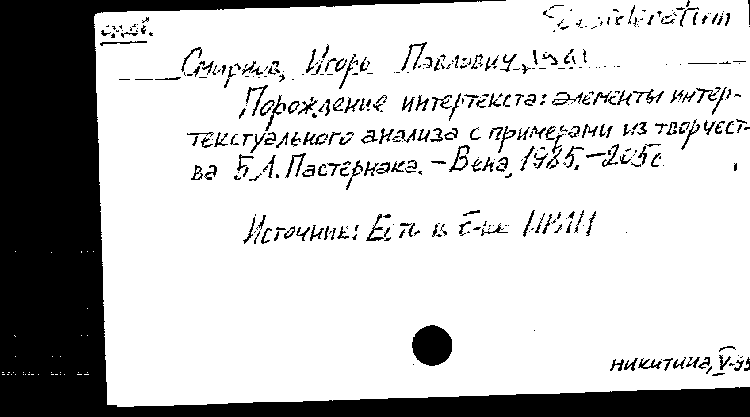 Desideratum
Смирнов, Игорь Павлович, 1941
Порождение интертекста: элементы интер-
текстуального анализа с примерами из творчест-
ва Б.Л. Пастернака. – Вена, 1985. – 205 с.
Источник: Есть в Б-ке ИРЛИ
никитина, V-95